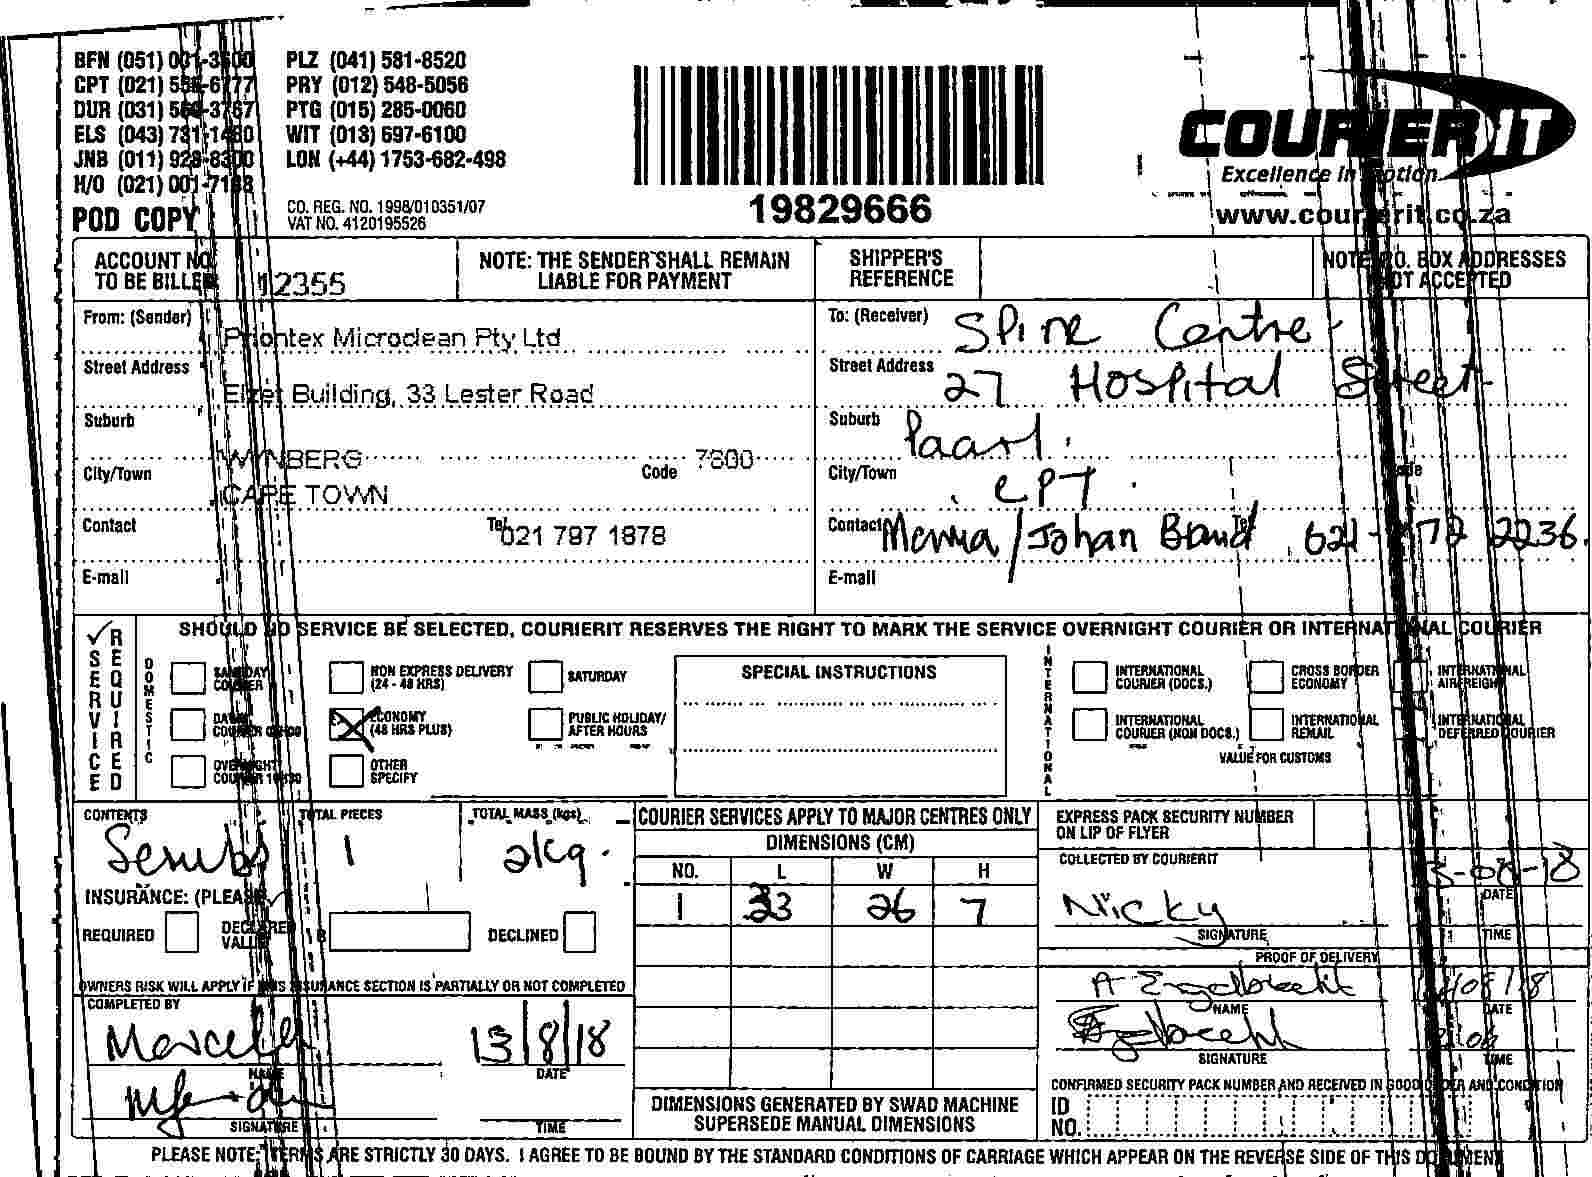 BFN (051) 001-3600 PLZ (041) 581-8520
CPT (021) 555-6777 PRY (012) 548-5056
DUR (031) 569-3767 PTG (015) 285-0060
ELS (043) 731-1480 WIT (013) 697-6100
JNB (011) 929-8300 LON (+44) 1753-682-498
H/O (021) 001-7188
POD COPY
CO. REG. NO. 1998/010351/07
VAT NO. 4120195526
19829666
COURIERIT
Excellence in Motion
www.courierit.co.za
ACCOUNT NO. TO BE BILLED 12355
NOTE: THE SENDER SHALL REMAIN LIABLE FOR PAYMENT
SHIPPER'S REFERENCE
NOTE P.O. BOX ADDRESSES NOT ACCEPTED
From: (Sender) Priontex Microclean Pty Ltd
Street Address Elzet Building, 33 Lester Road
Suburb WYNBERG
City/Town CAPE TOWN Code 7800
Contact Tel 021 797 1878
E-mail
To: (Receiver) Spine Centre
Street Address 27 Hospital Street
Suburb Paarl.
City/Town CPT. Code
Contact /Johan Brand Tel 021-872 2236
E-mail
SHOULD NO SERVICE BE SELECTED, COURIERIT RESERVES THE RIGHT TO MARK THE SERVICE OVERNIGHT COURIER OR INTERNATIONAL COURIER
SERVICE REQUIRED
DOMESTIC
SAMEDAY COURIER
NON EXPRESS DELIVERY (24 - 48 HRS)
SATURDAY
DAWN COURIER
ECONOMY (48 HRS PLUS)
PUBLIC HOLIDAY/ AFTER HOURS
OVERNIGHT COURIER 10H30
OTHER SPECIFY
SPECIAL INSTRUCTIONS
INTERNATIONAL
INTERNATIONAL COURIER (DOCS.)
CROSS BORDER ECONOMY
INTERNATIONAL AIRFREIGHT
INTERNATIONAL COURIER (NON DOCS.)
INTERNATIONAL REMAIL
INTERNATIONAL DEFERRED COURIER
VALUE FOR CUSTOMS
CONTENTS Scrubs
TOTAL PIECES 1
TOTAL MASS (kgs) 2kg.
INSURANCE: (PLEASE
REQUIRED
DECLARED VALUE R
DECLINED
OWNERS RISK WILL APPLY IF THIS INSURANCE SECTION IS PARTIALLY OR NOT COMPLETED
COMPLETED BY
13/8/18
NAME DATE
SIGNATURE TIME
COURIER SERVICES APPLY TO MAJOR CENTRES ONLY
DIMENSIONS (CM)
NO. L W H
1 33 26 7
DIMENSIONS GENERATED BY SWAD MACHINE SUPERSEDE MANUAL DIMENSIONS
EXPRESS PACK SECURITY NUMBER ON LIP OF FLYER
COLLECTED BY COURIERIT
Nicky
DATE
SIGNATURE TIME
PROOF OF DELIVERY
A Engelbrecht
NAME DATE
Engelbrecht
SIGNATURE TIME
CONFIRMED SECURITY PACK NUMBER AND RECEIVED IN GOOD ORDER AND CONDITION
ID NO.
PLEASE NOTE: TERMS ARE STRICTLY 30 DAYS. I AGREE TO BE BOUND BY THE STANDARD CONDITIONS OF CARRIAGE WHICH APPEAR ON THE REVERSE SIDE OF THIS DOCUMENT